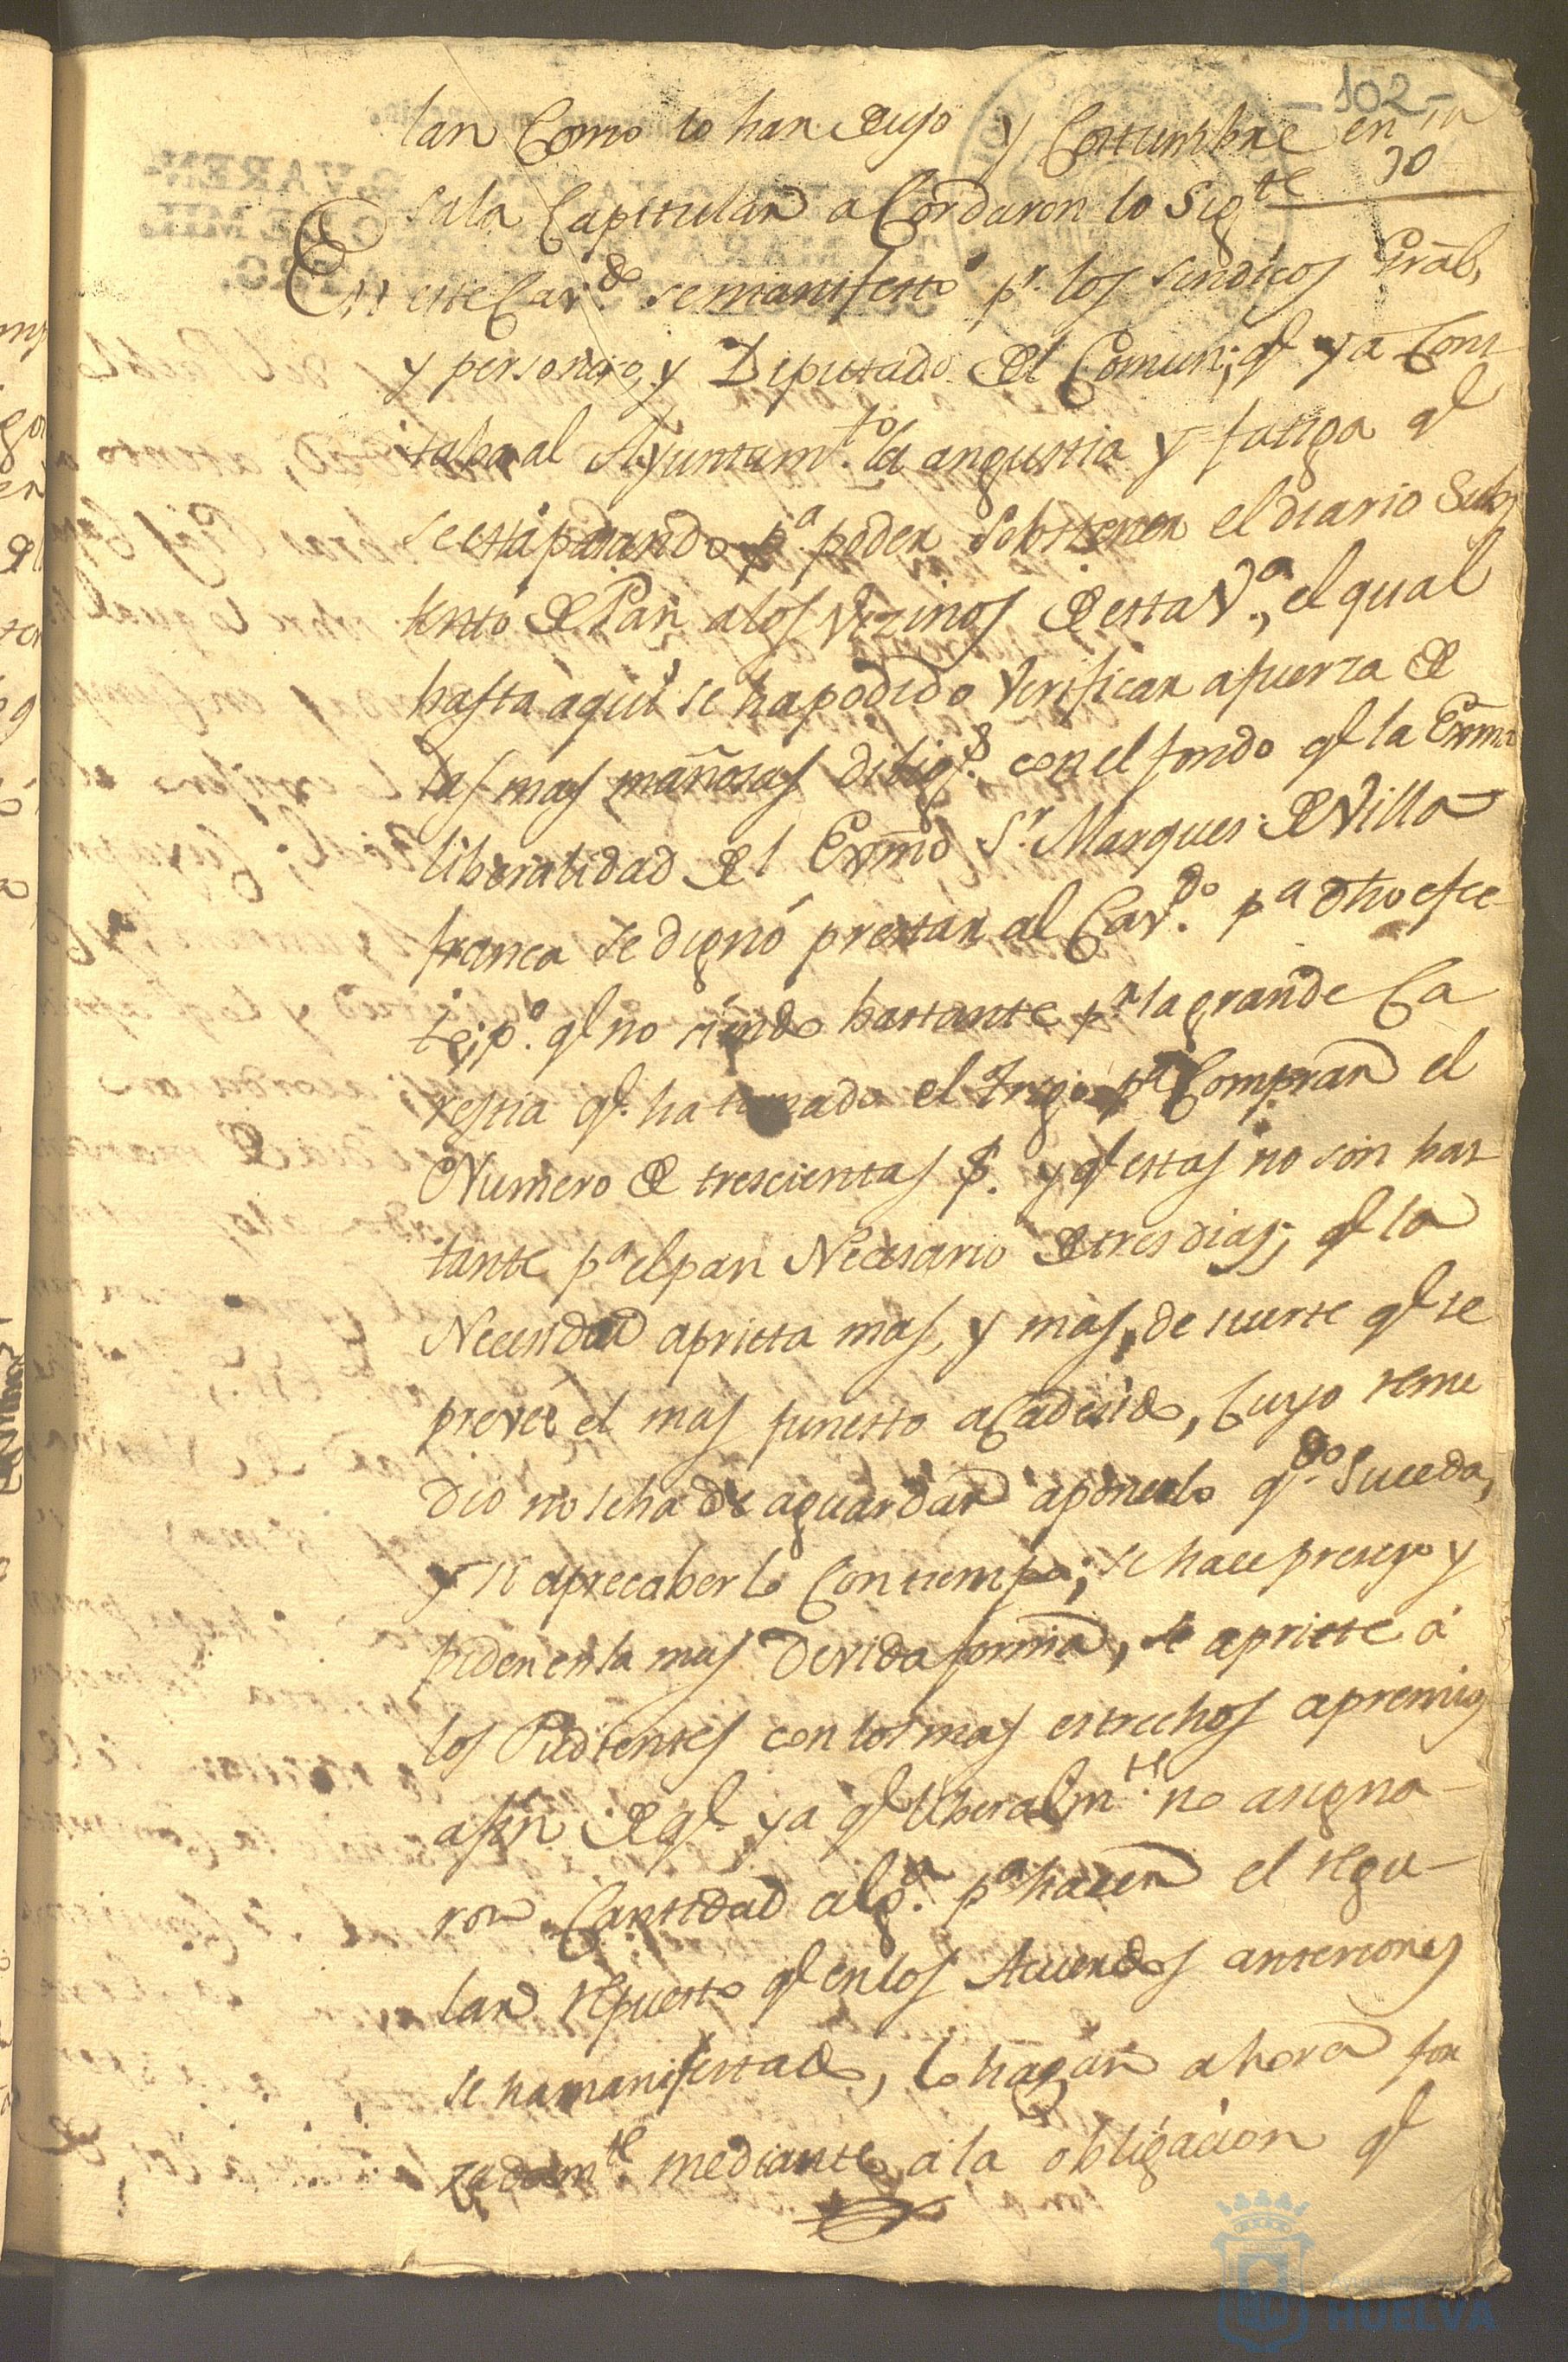 -102-
30
lar Como lo han de uso y Costumbre en la
sala Capitular acordaron lo sigte
En este Cavdo se manifesto pr los sindicos Gral,
y personero, y Diputado del Comun; qe ya Cons
taba al Ayuntamto la angustia y fatiga qe
se está pasando pa poder sobstener el diario Sus
tento de Pan a los Vezinos de esta Va, el qual
hasta aqui se ha podido Verificar a fuerza de
las mas mañosas diligs con el fondo qe la Exma
liberalidad del Exmo Sr Marques de Villa
franca se dignó prestar al Cavdo pa dho efec
to; po qe no siendo bastante pa la grande Ca
restia qe ha tomado el trigo pa Comprar el
Numero de trescientas f. y qe estas no son bas
tante pa el pan Necesario de tres dias; qe la
Necesidad aprieta mas, y mas, de suerte qe se
preveé el mas funesto acadecido, Cuyo reme
dio no se ha de aguardar a ponerlo qdo suceda,
y si a precaberlo Con tiempo; se hace preciso y
piden en la mas Devida forma, se apriete á
los Pudientes con los mas estrechos apremios
a fin de qe ya qe liberalmte no asigna-
ron Cantidad alga pa hacer el regu-
lar repuesto qe en los Acuerdos anteriores
se ha manifestado, lo hagan ahora for
zadamte mediante a la obligacion qe
HUELVA